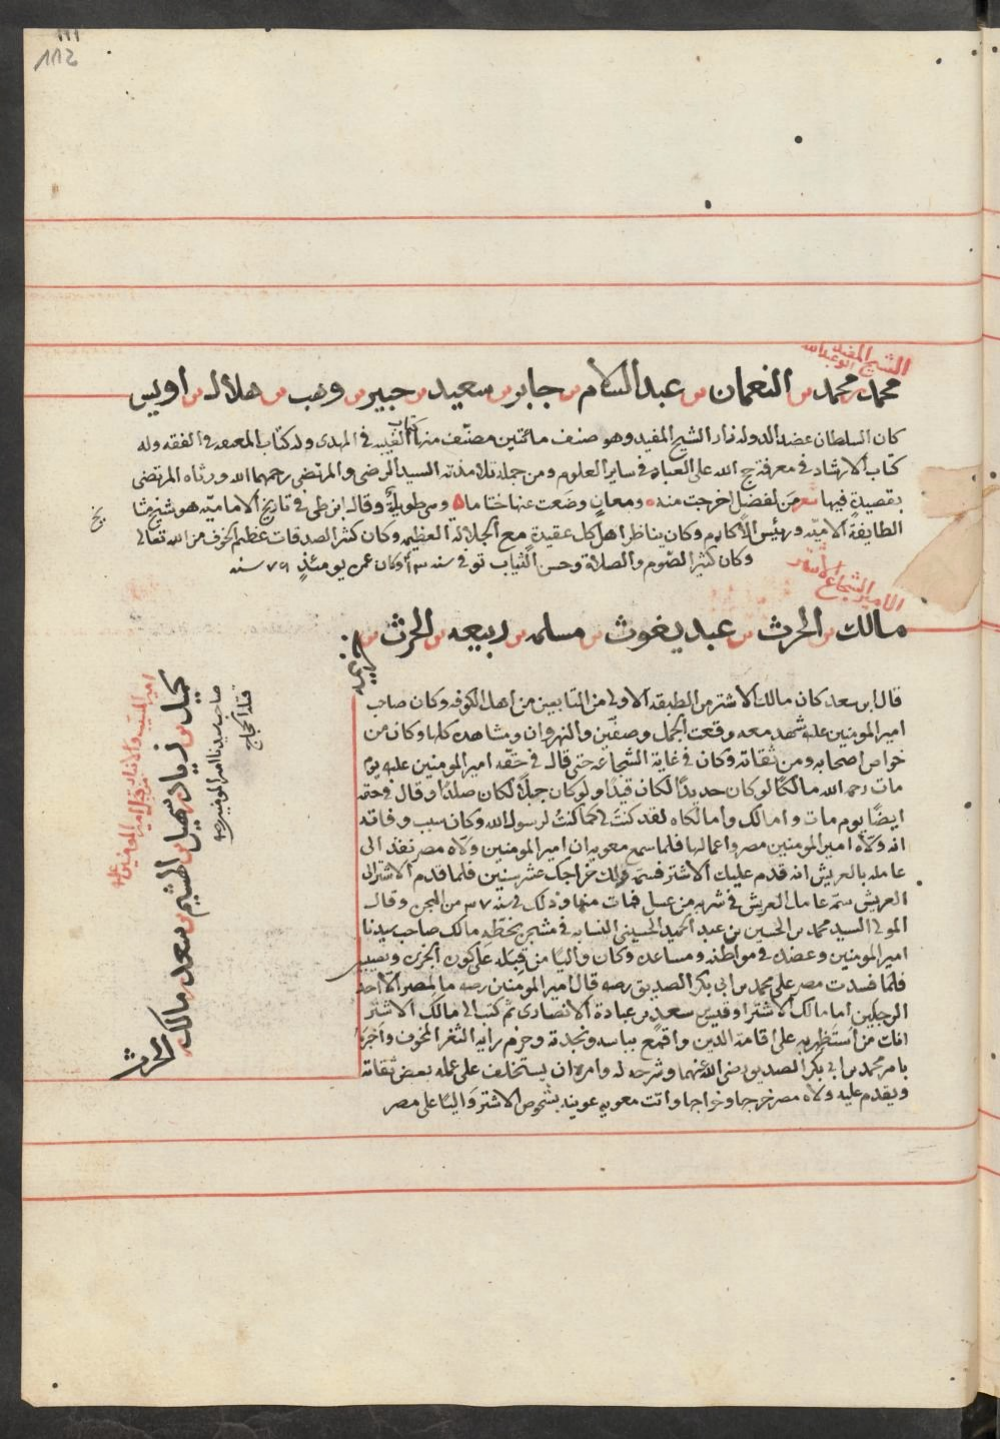 112
الشيخ المفيد
ابو عبدالله
محمد بن محمد بن النعمان بن عبد السلام بن جابر بن سعيد بن جبير بن وهب بن هلال بن اويس
كان السلطان عضد الدوله الشيخ المفيد وهو صنف مائتين مصنف منها كتاب الغيبه في المهدى وله كتاب في الفقه وله
كتاب الارشاد في معرفة حجج الله على العباد في ساير العلوم ومن جملة تلامذته السيد الرضى والمرتضى رحمهما الله ورثاه المرتضى
بقصيدة فيها شعر مَن لفضل اخرجت منه ومعان وضعت عنها ختاما وهى طويلة وقال ابن طى في تاريخ الاماميه هو شيخ مشا
الطايفة الاميه ورئيس الاكابر وكان يناظر اهل كل عقيدة مع الجلالة العظيمه وكان كثير الصدقات عظيم الخوف من الله تعالى
وكان كثير الصوم والصلاة وحسن الثياب توفى سنه وكان عمره يومئذ ٧٦ سنه
الامير الشجاع الاشتر
مالك بن الحرث بن عبد يغوث بن مسلمه بن ربيعه بن الحرث بن
قال ابن سعد كان مالك الاشتر من الطبقه الاولى من التابعين من اهل الكوفه وكان صاحب
امير المومنين عليه شهد معه وقعت الجمل وصفين والنهروان ومشاهده كلها وكان من
خواص اصحابه ومن ثقاته وكان في غاية الشجاعه حتى قال في حقه امير المومنين عليه يوم
مات رحم الله مالكًا لو كان حديدًا لكان قيدًا ولو كان جبلًا لكان صلدًا وقال في حقه
ايضًا يوم مات وامالك وامالكاه لقد كنت لى كما كنت لرسول الله وكان سبب وفاته
انه ولّاه امير المومنين مصر واعمالها فلما سمع معويه ان امير المومنين ولّاه مصر نفذ الى
عامله بالعريش انه قدم عليك الاشتر فسمه ولك خراجك عشر سنين فلما قدم الاشتر الى
العريش سمّه عامل العريش في شربه من عسل فمات منها وذلك في سنه ٣٧ من الهجره وقال
المولى السيد محمد بن الحسين بن عبد الحميد الحسينى النسابه في مشجره بخطه مالك صاحب سيدنا
امير المومنين وعضده في مواطنه ومساعده وكان واليًا من قبله على كور الجزيره ونصيبين
فلما فسدت مصر على محمد بن ابى بكر الصديق رضه قال امير المومنين رضه ما لمصر الا احد
الرجلين اما مالك الاشتر او قيس بن سعد بن عبادة الانصارى ثم كتب الى مالك الاشتر
انك من استظهر به على اقامة الدين واقمع بباسه ونجدته وحزم رايه الثغر المخوف واخره
بامر محمد بن ابى بكر الصديق رضى الله عنهما وشرحه له وامره ان يستخلف على عمله بعض ثقاته
ويقدم عليه وولاه مصر خرجها وخراجها واتت معويه عيونه بشخوص الاشتر واليًا على مصر
كميل بن زياد بن سهيل بن الهيثم بن سعد بن مالك بن الحرث
صاحب سيدنا امير المومنين رضه
قتله الحجاج